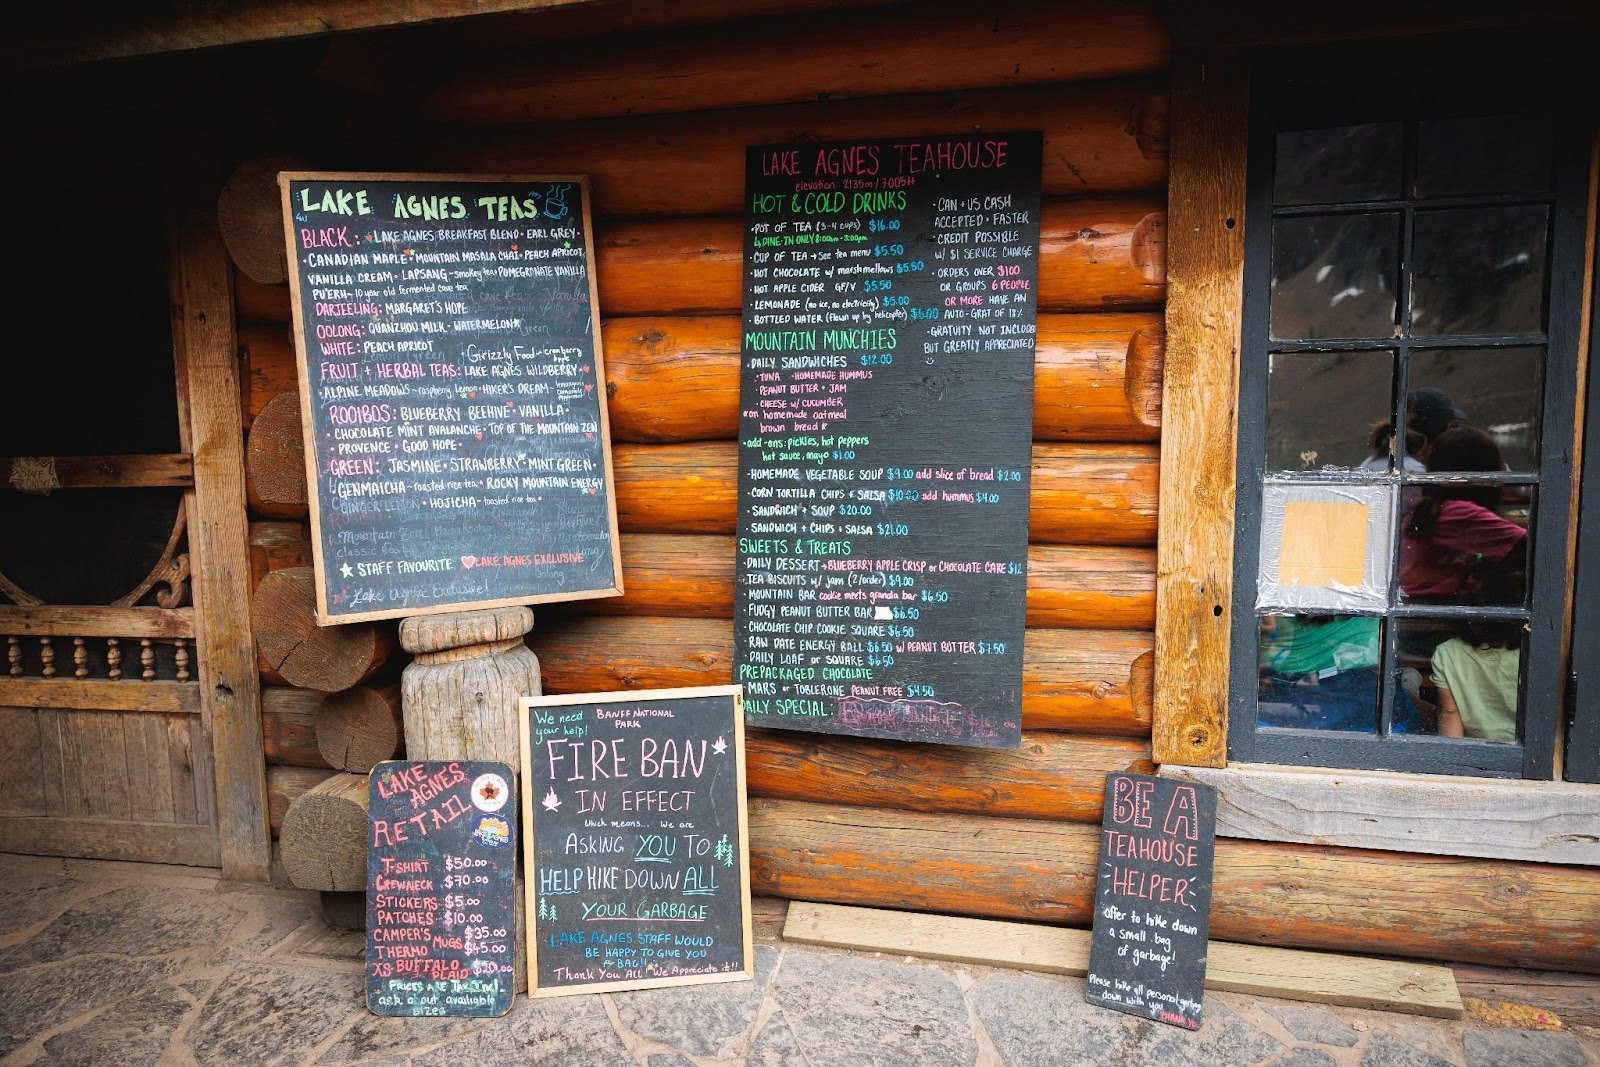 LAKE AGNES TEAS
BLACK: LAKE AGNES BREAKFAST BLEND · EARL GREY ·
· CANADIAN MAPLE · MOUNTAIN MASALA CHAI · PEACH APRICOT
VANILLA CREAM · LAPSANG - smokey tea · POMEGRANATE VANILLA
PU'ERH - 10 year old fermented cave tea
DARJEELING: MARGARET'S HOPE
OOLONG: QUANZHOU MILK · WATERMELON
WHITE: PEACH APRICOT
FRUIT + HERBAL TEAS: LAKE AGNES WILDBERRY ·
· Grizzly Food - cranberry apple
· ALPINE MEADOWS - raspberry lemon · HIKER'S DREAM -
ROOIBOS: BLUEBERRY BEEHIVE · VANILLA ·
· CHOCOLATE MINT AVALANCHE · TOP OF THE MOUNTAIN ZEN
· PROVENCE · GOOD HOPE ·
GREEN: JASMINE · STRAWBERRY · MINT GREEN ·
GENMAICHA - roasted rice tea · ROCKY MOUNTAIN ENERGY
GINGER LEMON · HOJICHA - toasted rice tea ·
STAFF FAVOURITE LAKE AGNES EXCLUSIVE
Lake Agnes Exclusive!
LAKE AGNES TEAHOUSE
elevation: 2135m / 7005ft
HOT & COLD DRINKS
· POT OF TEA (3-4 cups) $16.00
DINE-IN ONLY 8:00am - 3:00pm
· CUP OF TEA → See tea menu $5.50
· HOT CHOCOLATE w/ marshmellows $5.50
· HOT APPLE CIDER GF/V $5.50
· LEMONADE (no ice, no electricity) $5.00
· BOTTLED WATER (flown up by helicopter) $6.00
· CAN + US CASH
ACCEPTED · FASTER
· CREDIT POSSIBLE
W/ $1 SERVICE CHARGE
· ORDERS OVER $100
OR GROUPS 6 PEOPLE
OR MORE HAVE AN
AUTO-GRAT OF 18%
· GRATUITY NOT INCLUDED
BUT GREATLY APPRECIATED
MOUNTAIN MUNCHIES
· DAILY SANDWICHES $12.00
· TUNA · HOMEMADE HUMMUS
· PEANUT BUTTER + JAM
· CHEESE W/ CUCUMBER
*on homemade oatmeal
brown bread*
· add-ons: pickles, hot peppers
hot sauce, mayo $1.00
· HOMEMADE VEGETABLE SOUP $9.00 add slice of bread $2.00
· CORN TORTILLA CHIPS + SALSA $10.00 add hummus $4.00
· SANDWICH + SOUP $20.00
· SANDWICH + CHIPS + SALSA $21.00
SWEETS & TREATS
· DAILY DESSERT → BLUEBERRY APPLE CRISP or CHOCOLATE CAKE $12
· TEA BISCUITS w/ jam (2/order) $9.00
· MOUNTAIN BAR cookie meets granola bar $6.50
· FUDGY PEANUT BUTTER BAR $6.50
· CHOCOLATE CHIP COOKIE SQUARE $6.50
· RAW DATE ENERGY BALL $6.50 w/ PEANUT BUTTER $7.50
· DAILY LOAF or SQUARE $6.50
PREPACKAGED CHOCOLATE
· MARS or TOBLERONE PEANUT FREE $4.50
DAILY SPECIAL:
LAKE
AGNES
RETAIL
T-SHIRT $50.00
CREWNECK $70.00
STICKERS $5.00
PATCHES $10.00
CAMPER'S MUGS $35.00
THERMO $45.00
XS BUFFALO PLAID $20.00
PRICES ARE TAX Incl.
ask about available
sizes
We need your help!
BANFF NATIONAL PARK
FIRE BAN
IN EFFECT
Which means... We are
ASKING YOU TO
HELP HIKE DOWN ALL
YOUR GARBAGE
· LAKE AGNES STAFF WOULD
BE HAPPY TO GIVE YOU
A BAG!!
Thank You All! We Appreciate it!!
BE A
TEAHOUSE
HELPER
offer to hike down
a small bag
of garbage!
Please hike all personal garbage
down with you
STAFF ONLY